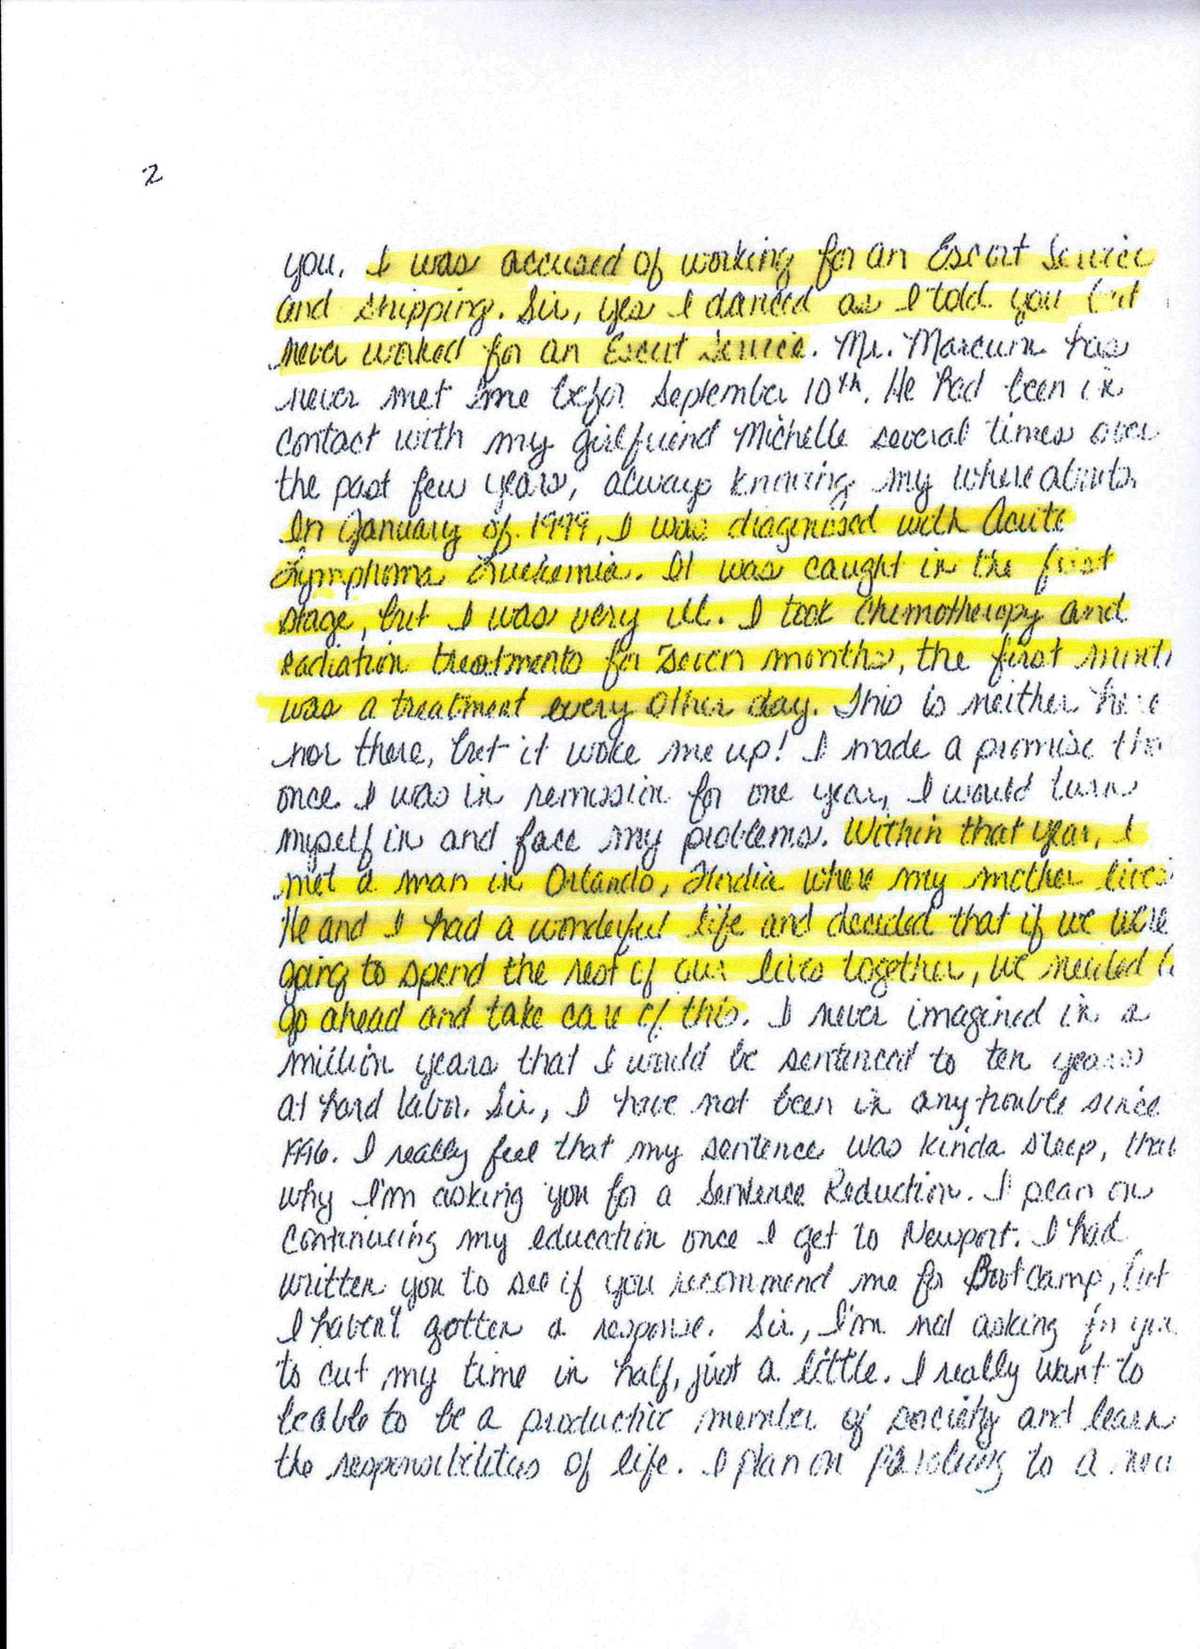 2
you. I was accused of working for an Escort Service
and stripping. Sir, yes I danced as I told you but
never worked for an Escort Service. Mr. Marcum has
never met me befor September 10th. He had been in
contact with my girlfriend Michelle several times over
the past few years, always knowing my where abouts.
In January of 1999, I was diagnosed with Acute
Lymphoma Luekemia. It was caught in the first
stage, but I was very ill. I took chemotherapy and
radiation treatments for seven months, the first month
was a treatment every other day. This is neither here
nor there, but it woke me up! I made a promise
once I was in remission for one year, I would turn
myself in and face my problems. Within that year, I
met a man in Orlando, Flordia where my mother lives
He and I had a wonderful life and decided that if we were
going to spend the rest of our lives together, we needed to
go ahead and take care of this. I never imagined in a
million years that I would be sentenced to ten years
at hard labor. Sir, I have not been in any trouble since
1996. I really feel that my sentence was kinda steep, that
why I'm asking you for a Sentence Reduction. I plan on
continuing my education once I get to Newport. I had
written you to see if you recommend me for Boot Camp, but
I haven't gotten a response. Sir, I'm not asking for you
to cut my time in half, just a little. I really want to
be able to be a productive member of society and learn
the responsibilities of life. I plan on paroling to a